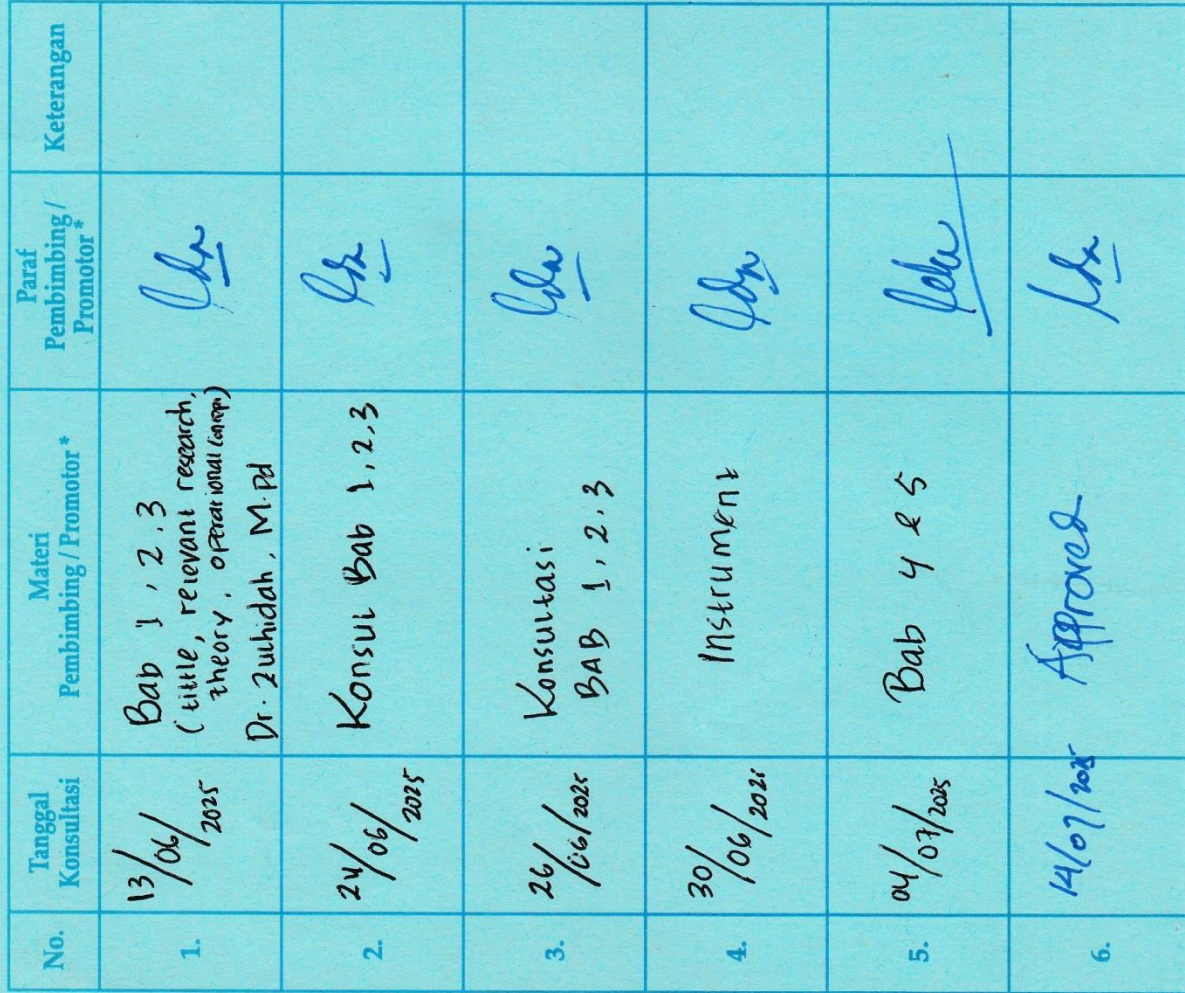 No.
Tanggal
Konsultasi
Materi
Pembimbing / Promotor *
Paraf
Pembimbing /
Promotor *
Keterangan
1.
13/06/2025
Bab 1, 2, 3
(tittle, relevant research,
theory, operational concept)
Dr. Zulhidah, M.Pd
2.
24/06/2025
Konsul Bab 1, 2, 3
3.
26/06/2025
Konsultasi
BAB 1, 2, 3
4.
30/06/2025
Instrument
5.
04/07/2025
Bab 4 & 5
6.
14/07/2025
Approved